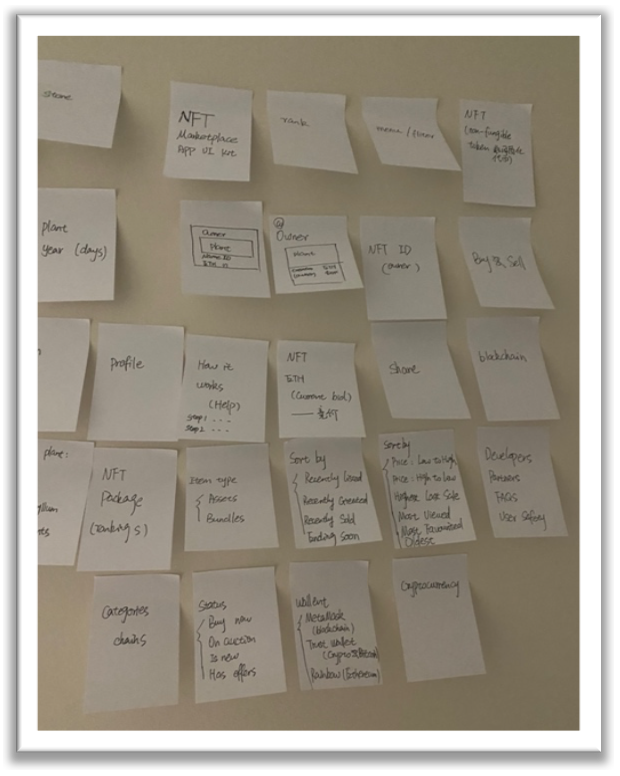 store
NFT
Marketplace
App UI Kit
rank
menu / filter
NFT
(non-fungible
token
plant
year (days)
owner
plane
ETH
Owner
plant
NFT ID
(owner)
Buy & Sell
Profile
How it
works
(Help)
Step 1 . . .
Step 2 . . .
NFT
ETH
(Current bid)
Share
blockchain
plane:
NFT
Package
(Rankings)
Item type
Assets
Bundles
Sort by
Recently Listed
Recently Created
Recently Sold
Ending Soon
Sort by
Price : Low to High
Price : High to Low
Highest Last Sale
Most Viewed
Most Favourited
Oldest
Developers
Partners
FAQs
User Safety
Categories
chains
Status
Buy now
On auction
Is new
Has offers
Wallent
MetaMask
(blockchain)
Trust Wallet
Rainbow (Ethereum)
Cryptocurrency